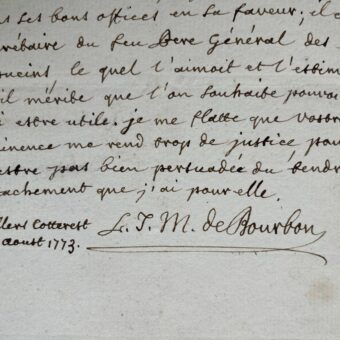 ns ses bons offices en sa faveur; il a
crébaire du feu Pere Général des
rucins le quel l'aimoit et l'estim
il méribe que l'on souhaibe pouvoi
i estre utile. je me flatte que vostr
inence me rend trop de justice pou
estre pas bien persuadée du bendr
achement que j'ai pour elle.
llers Cotterest
aoust 1773.
L. J. M. de Bourbon